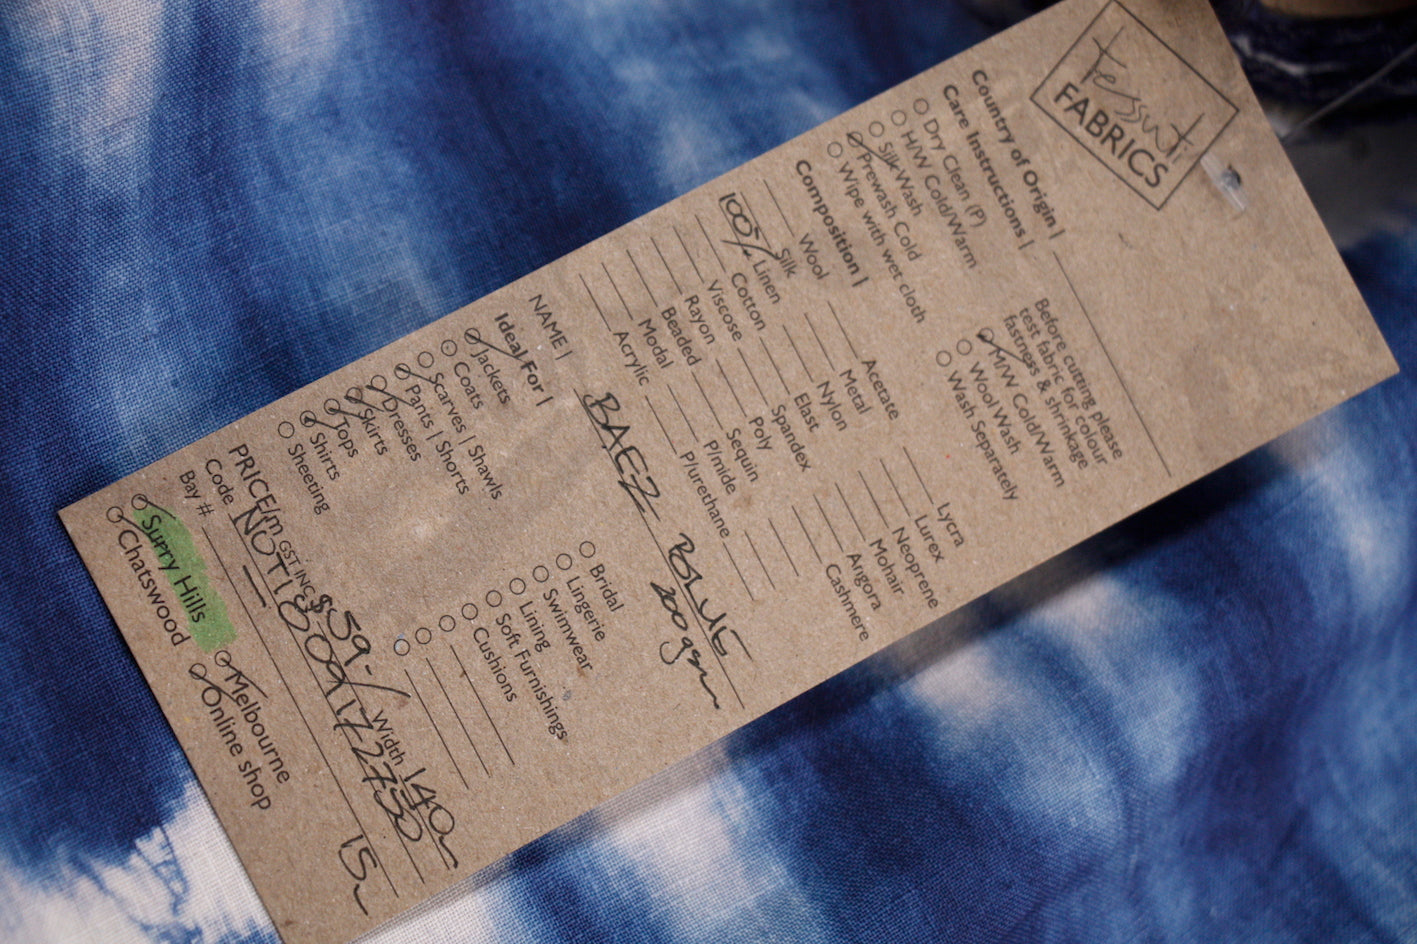 Tessuti
FABRICS
Country of Origin |
Care Instructions |
Dry Clean (P)
H/W Cold/Warm
Silk Wash
Prewash Cold
Wipe with wet cloth
Before cutting please
test fabric for colour
fastness & shrinkage
M/W Cold/Warm
Wool Wash
Wash Separately
Composition |
Wool
Silk
100% Linen
Cotton
Viscose
Rayon
Beaded
Modal
Acrylic
Acetate
Metal
Nylon
Elast
Spandex
Poly
Sequin
P/mide
P/urethane
Lycra
Lurex
Neoprene
Mohair
Angora
Cashmere
NAME | BAEZ BLUE
200gsm
Ideal For |
Jackets
Coats
Scarves | Shawls
Pants | Shorts
Dresses
Skirts
Tops
Shirts
Sheeting
Bridal
Lingerie
Swimwear
Lining
Soft Furnishings
Cushions
PRICE/m GST INC $59- Width 140
Code
Bay #
Surry Hills
Chatswood
Melbourne
Online shop